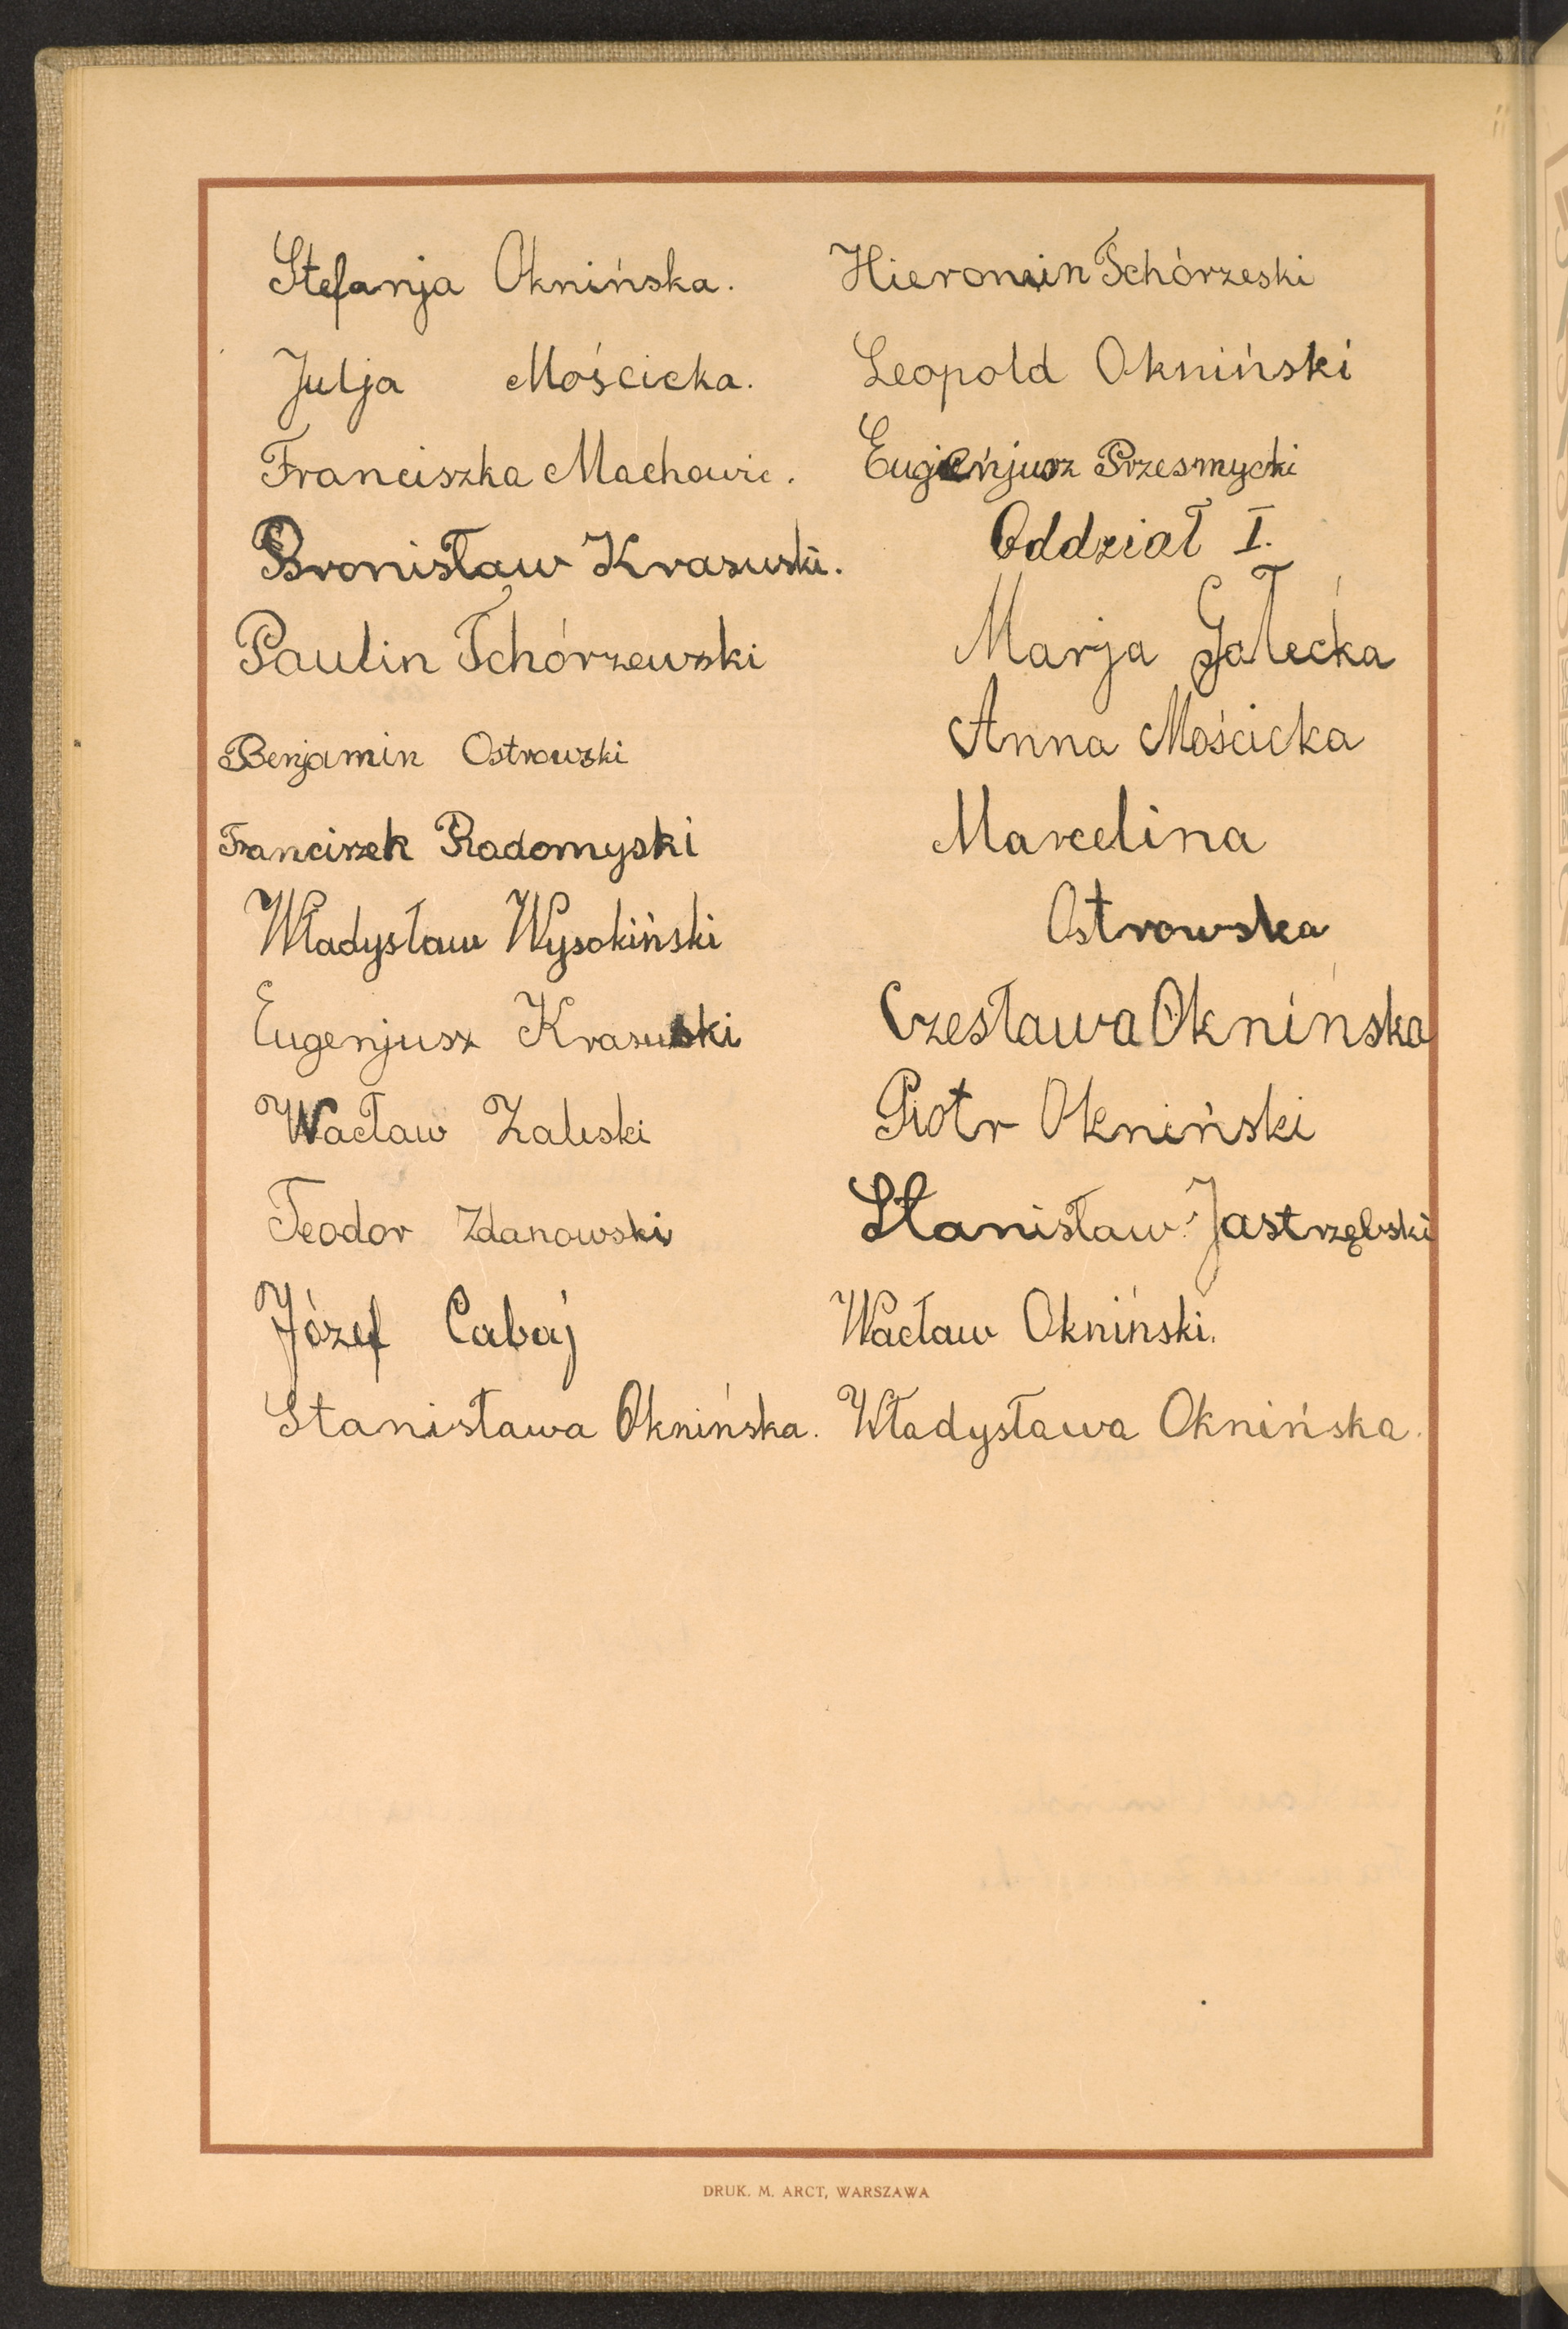 Stefanja Oknińska.
Julja Mościcka.
Franciszka Machowic.
Bronisław Krasuski.
Paulin Tchórzewski
Benjamin Ostrowski
Franciszek Radomyski
Władysław Wysokiński
Eugenjusz Krasuski
Wacław Zaleski
Teodor Zdanowski
Józef Cabaj
Stanisława Oknińska.
Hieronim Tchórzeski
Leopold Okniński
Eugieńjusz Przesmycki
Oddział I.
Marja Gałecka
Anna Mościcka
Marcelina
Ostrowska
Czesława Oknińska
Piotr Okniński
Stanisław Jastrzębski
Wacław Okniński.
Władysława Oknińska.
DRUK. M. ARCT, WARSZAWA